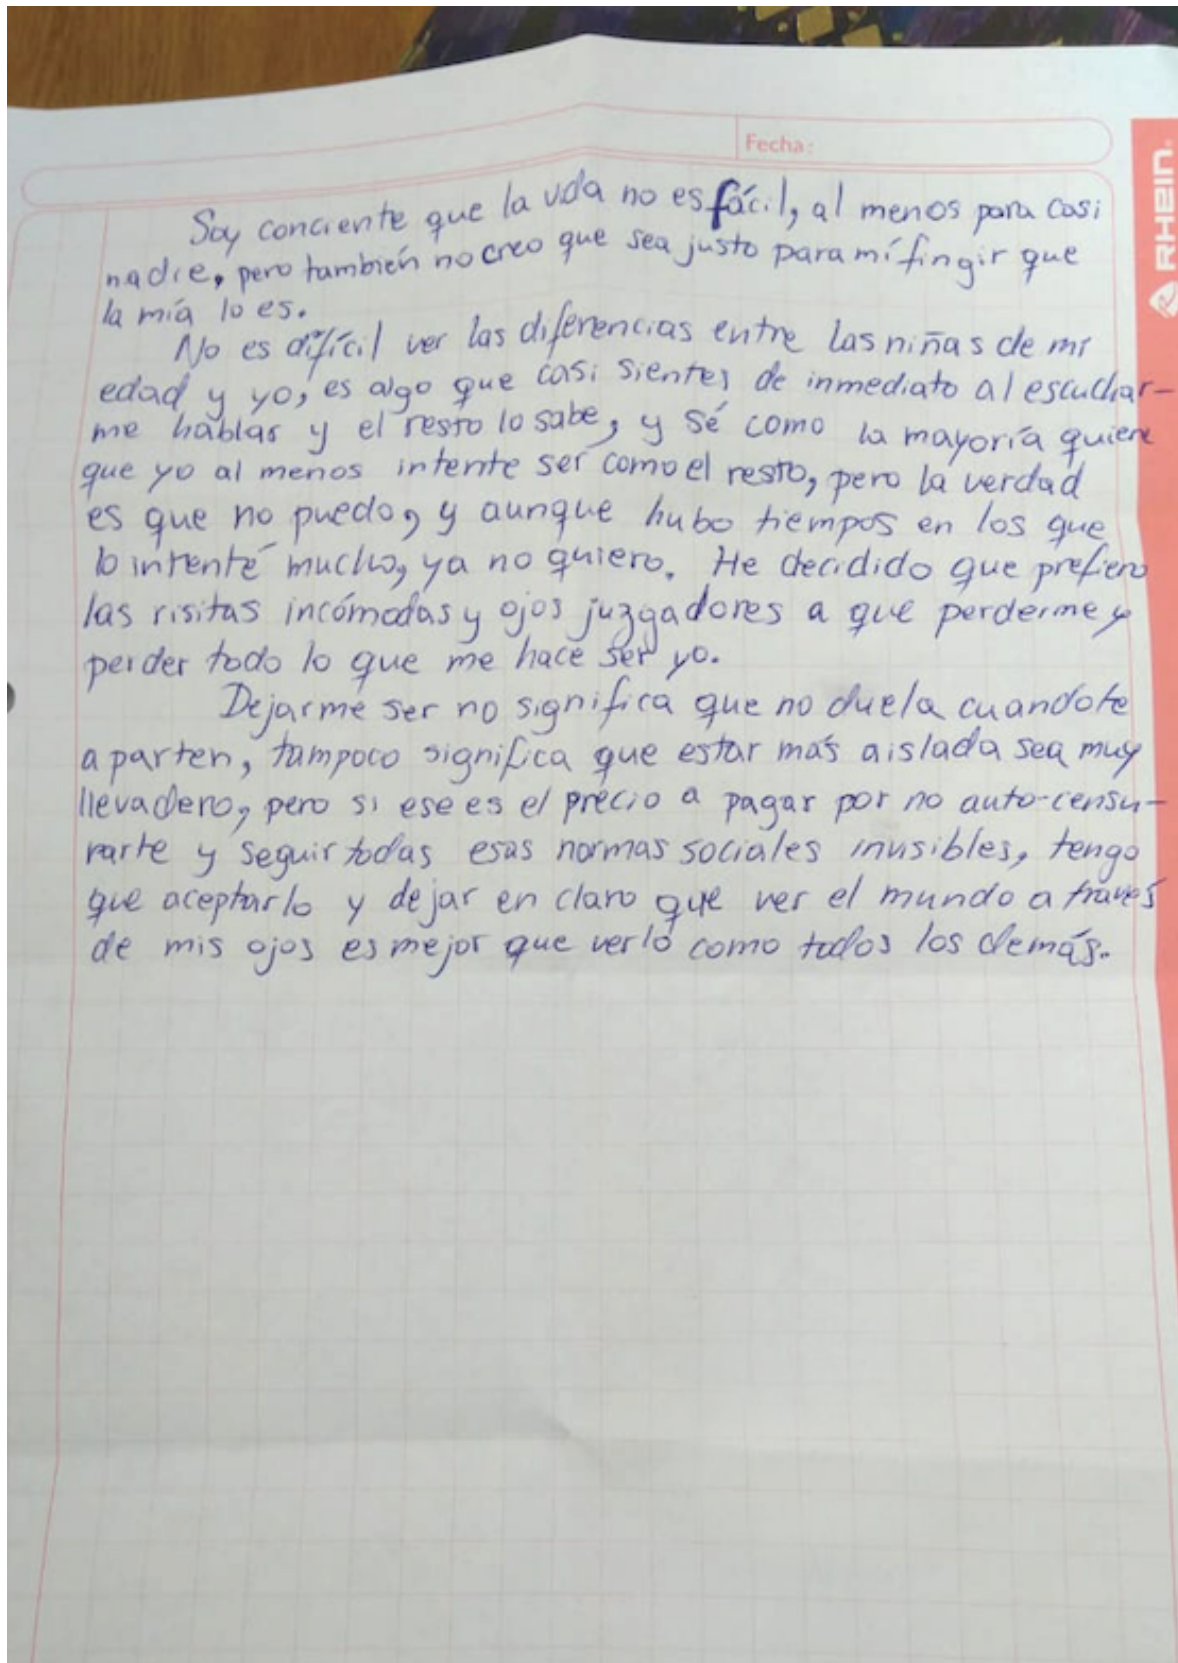 Fecha:
RHEIN
Soy conciente que la vida no es fácil, al menos para casi
nadie, pero también no creo que sea justo para mí fingir que
la mía lo es.
No es difícil ver las diferencias entre las niñas de mi
edad y yo, es algo que casi sientes de inmediato al escuchar-
me hablar y el resto lo sabe, y sé como la mayoría quiere
que yo al menos intente ser como el resto, pero la verdad
es que no puedo, y aunque hubo tiempos en los que
lo intenté mucho, ya no quiero. He decidido que prefiero
las risitas incómodas y ojos juzgadores a que perderme y
perder todo lo que me hace ser yo.
Dejarme ser no significa que no duela cuando te
aparten, tampoco significa que estar más aislada sea muy
llevadero, pero si ese es el precio a pagar por no auto-censu-
rarte y seguir todas esas normas sociales invisibles, tengo
que aceptarlo y dejar en claro que ver el mundo a través
de mis ojos es mejor que verlo como todos los demás.